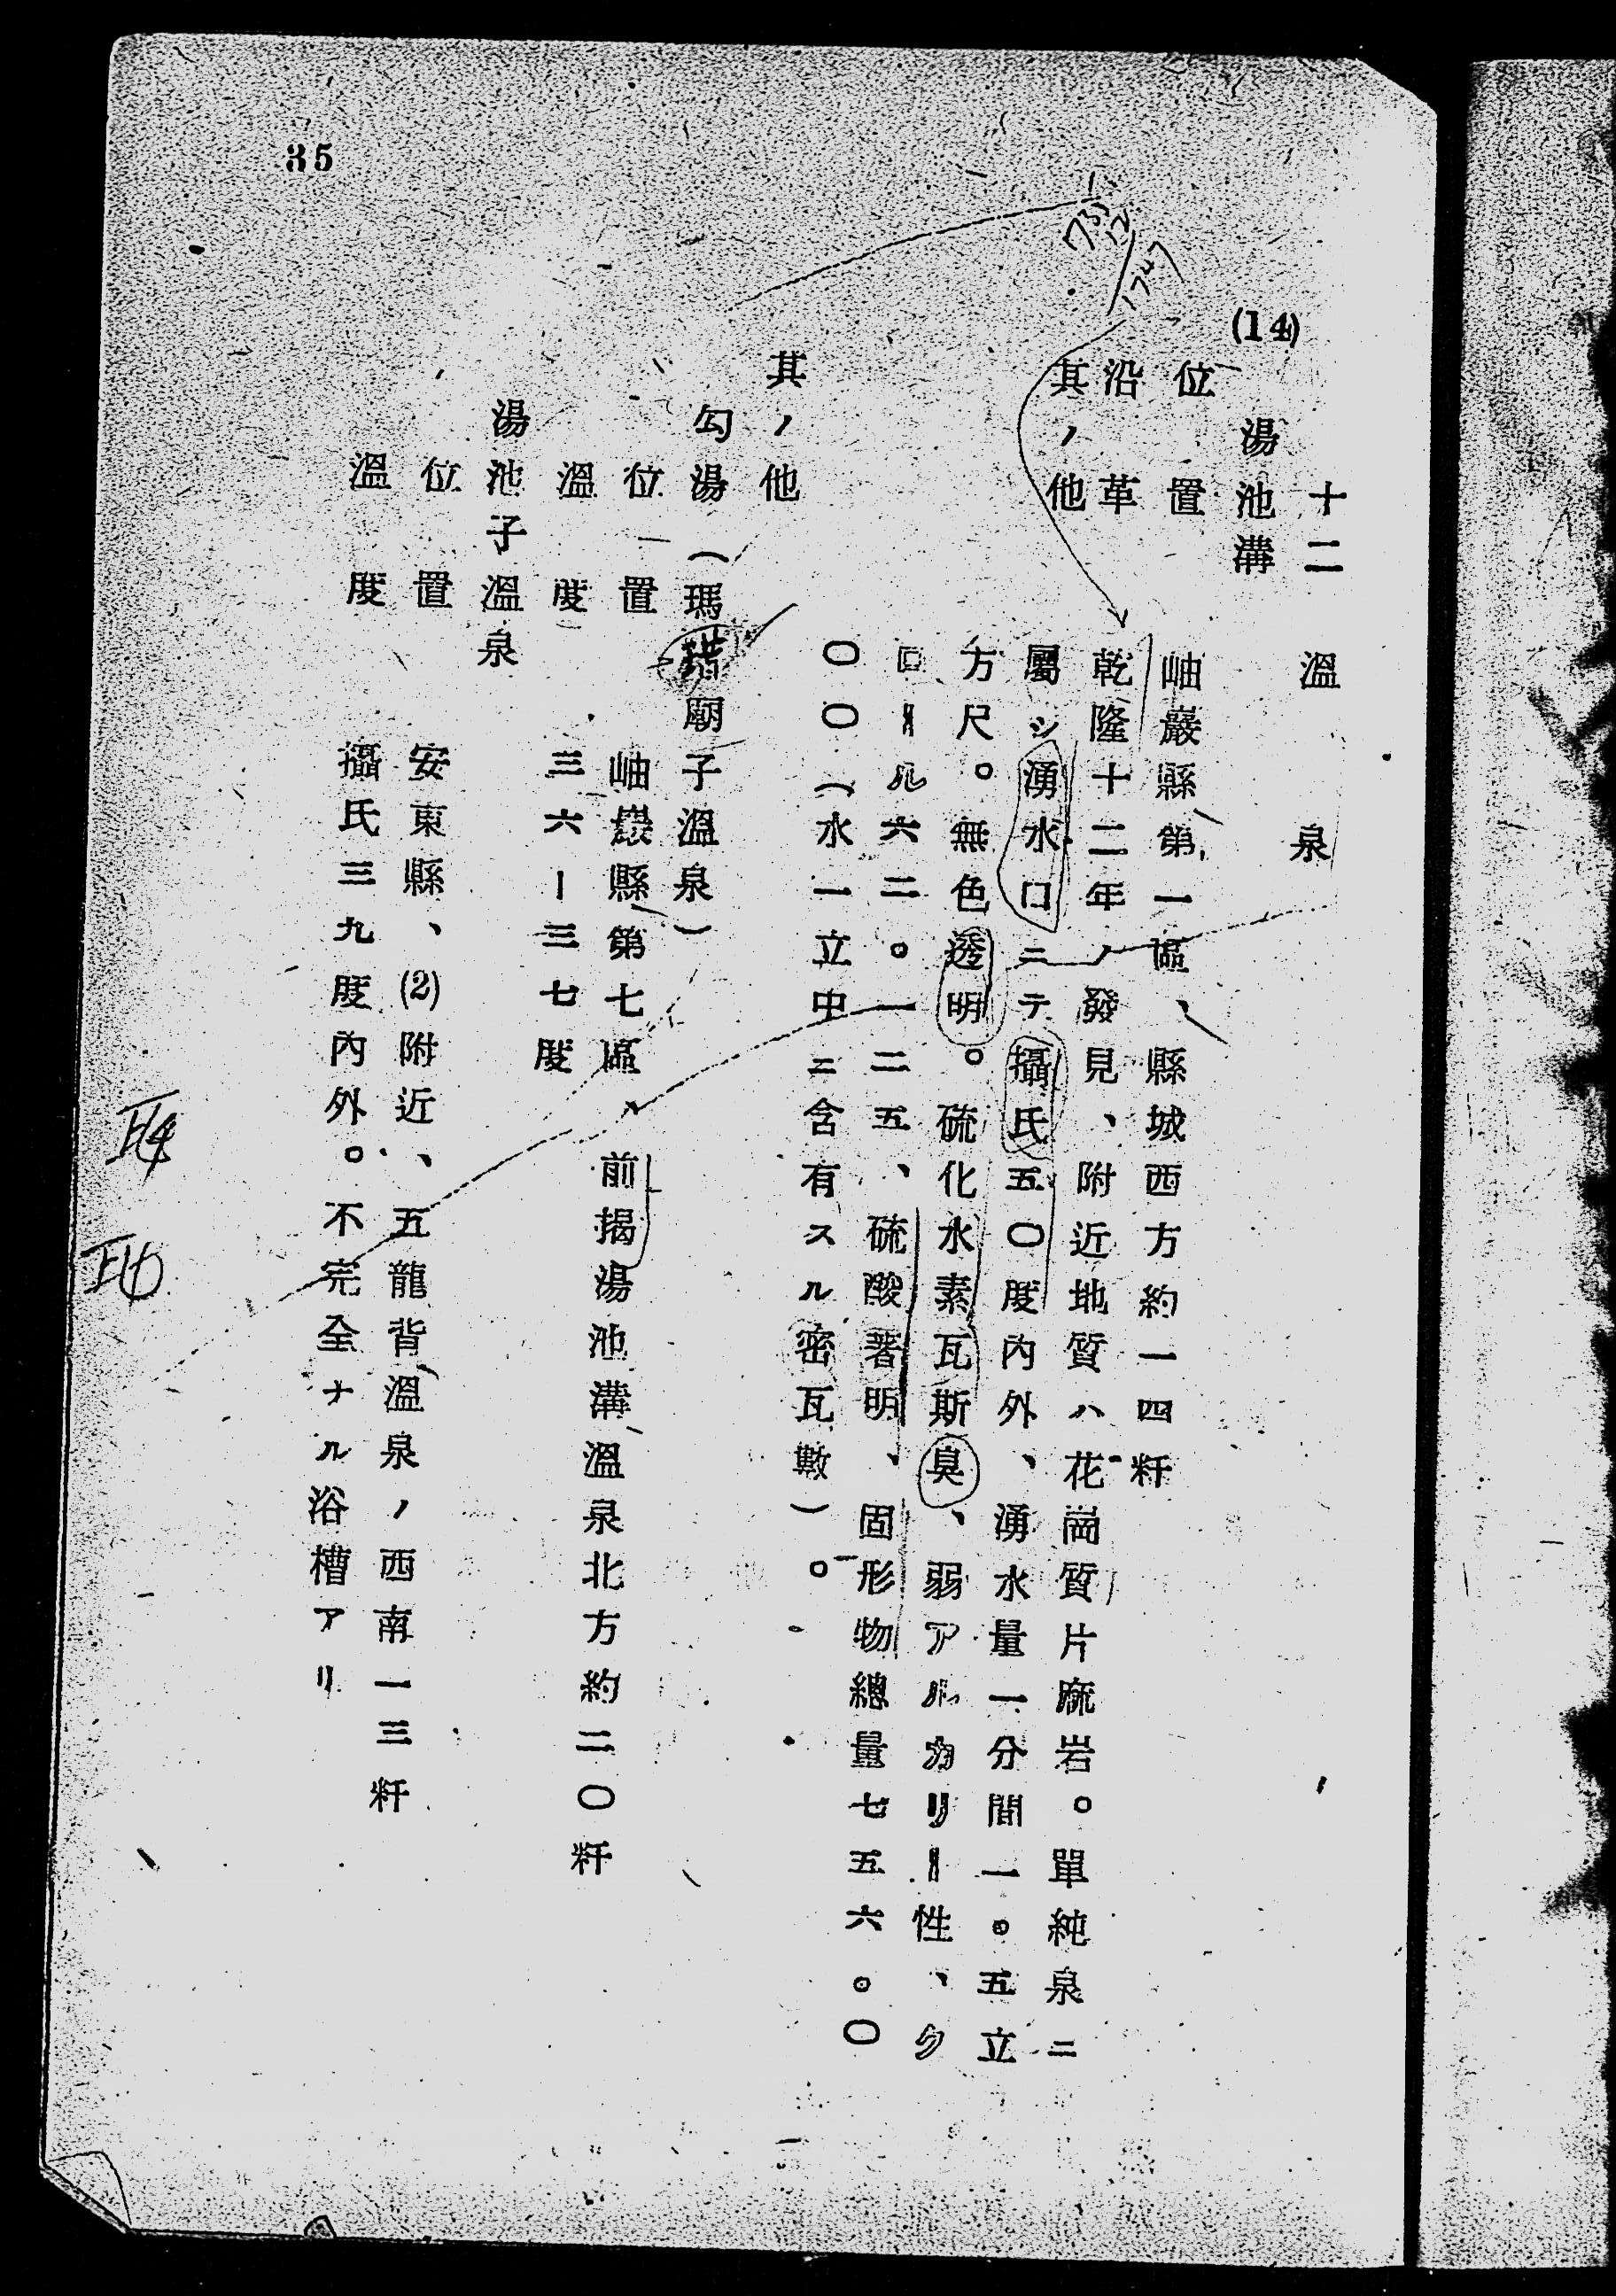 十二 溫泉
(14) 湯池溝
位置 岫巖縣第一區、縣城西方約一四粁
沿革 乾隆十二年ノ發見、附近地質ハ花崗質片麻岩。單純泉ニ
其ノ他 屬シ湧水口ニテ攝氏五〇度內外、湧水量一分間一。五立
方尺。無色透明。硫化水素瓦斯臭、弱アルカリー性、クロール六二。一二五、硫酸著明、固形物總量七五六。〇
〇〇(水一立中ニ含有スル密瓦數)。
其ノ他
勾湯(瑪瑙廟子溫泉)
位置 岫巖縣第七區、前揭湯池溝溫泉北方約二〇粁
溫度 三六ー三七度
湯池子溫泉
位置 安東縣、(2)附近、五龍背溫泉ノ西南一三粁
溫度 攝氏三九度內外。不完全ナル浴槽アリ
35
1747